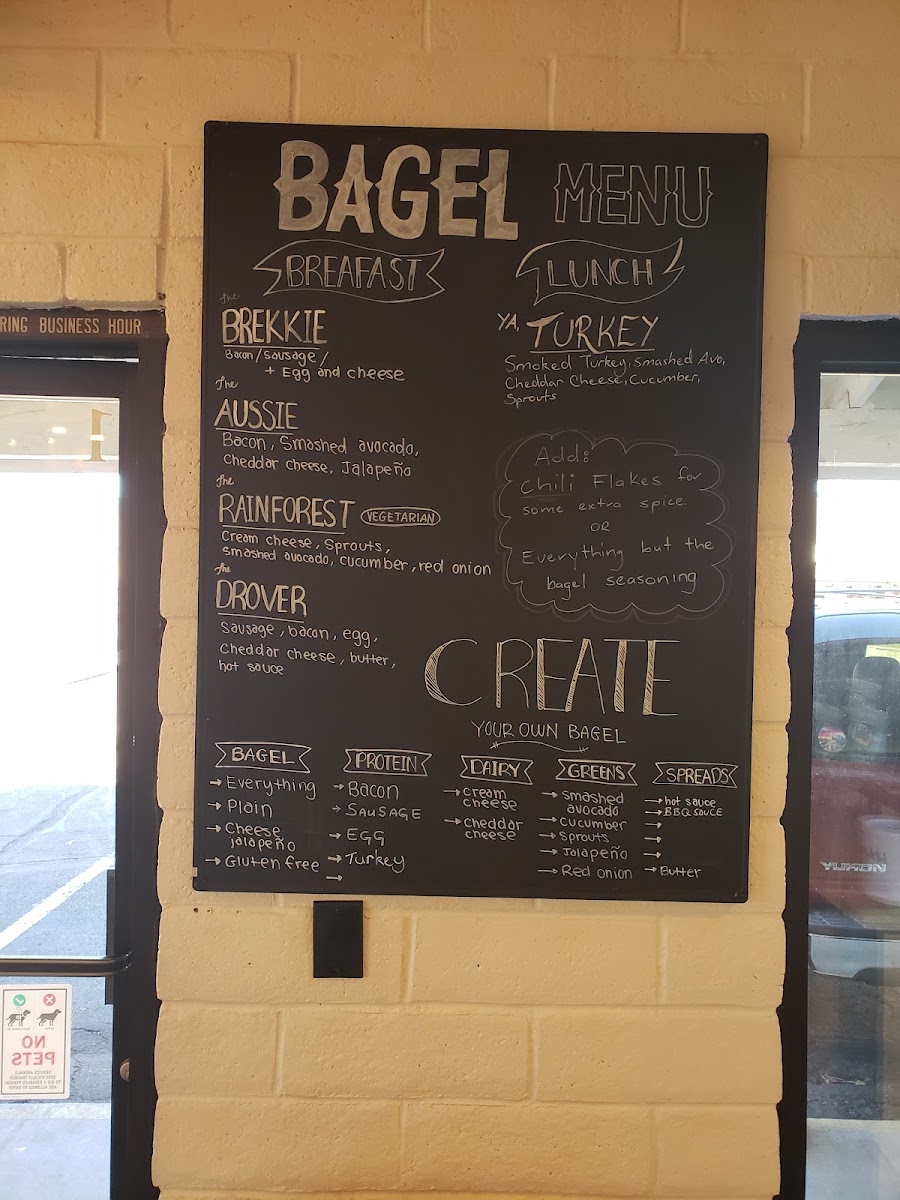 BAGEL MENU
BREAFAST
the
BREKKIE
Bacon/Sausage/
+ Egg and cheese
the
AUSSIE
Bacon, Smashed avocado,
Cheddar cheese, Jalapeño
the
RAINFOREST VEGETARIAN
Cream cheese, Sprouts,
Smashed avocado, cucumber, red onion
the
DROVER
Sausage, bacon, egg,
Cheddar cheese, butter,
hot sauce
LUNCH
YA, TURKEY
Smoked Turkey, Smashed Avo,
Cheddar Cheese, Cucumber,
Sprouts
Add:
chili Flakes for
some extra spice.
OR
Everything but the
bagel seasoning
CREATE
YOUR OWN BAGEL
BAGEL
→ Everything
→ Plain
→ Cheese
jalapeño
→ Gluten free
PROTEIN
→ Bacon
→ SAUSAGE
→ EGG
→ Turkey
→
DAIRY
→ cream
cheese
→ cheddar
cheese
GREENS
→ smashed
avocado
→ cucumber
→ Sprouts
→ Jalapeño
→ Red onion
SPREADS
→ hot sauce
→ BBQ SAUCE
→
→
→
→ Butter
RING BUSINESS HOUR
1
YUKON
NO
PETS
SERVICE ANIMALS
SPECIFICALLY TRAINED
TO AID A DISABLED PERSON
ARE ALLOWED TO ENTER